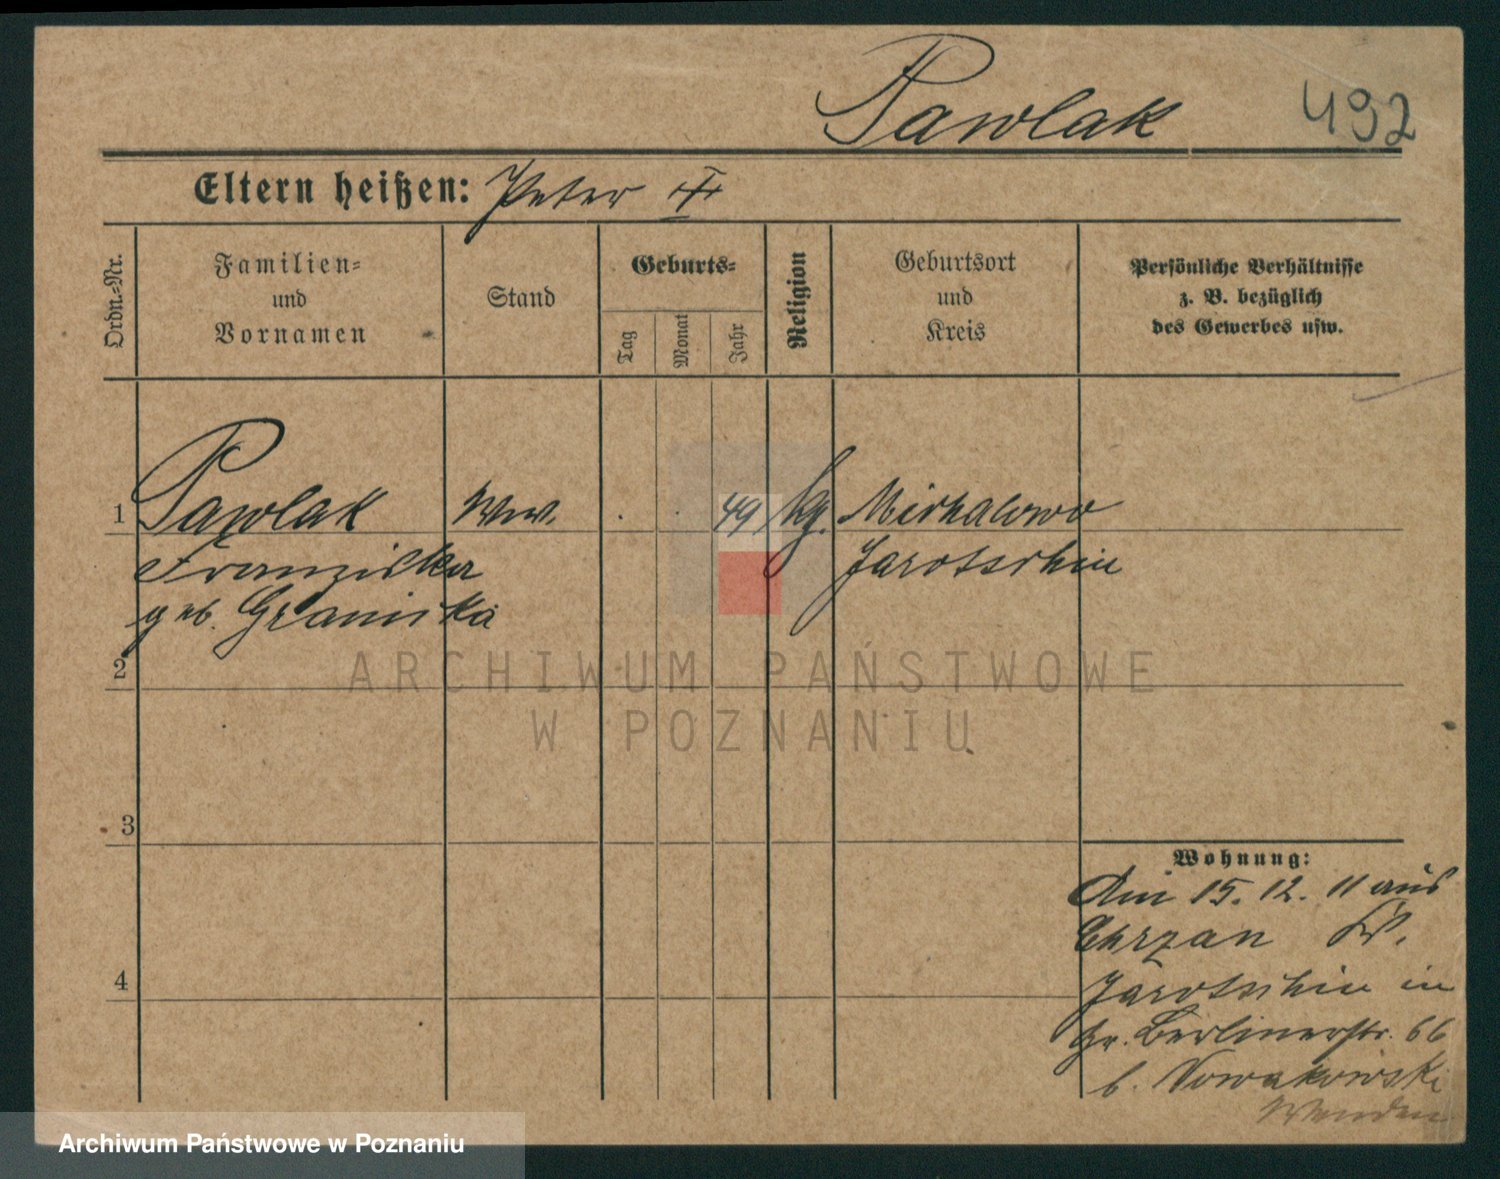 Pawlak 492
Eltern heißen: Peter
Ordn.-Nr.
Familien-
und
Vornamen
Stand
Geburts-
Tag
Monat
Jahr
Religion
Geburtsort
und
Kreis
Persönliche Verhältnisse
z. B. bezüglich
des Gewerbes usw.
1 Pawlak Ww. 49 kg. Michalowo
Franziska Jarotschin
geb. Graniska
2
3
4
Wohnung:
Am 15. 12. 11 aus
Chrzan Kr.
Jarotschin in
Gr. Berlinerstr. 66
b. Nowakowski
Wenden
ARCHIWUM PAŃSTWOWE
W POZNANIU
Archiwum Państwowe w Poznaniu